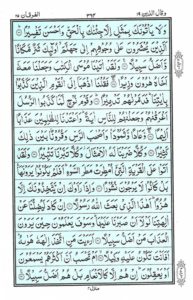 وقال الذين ١٩ الفرقان ٢٥
وَلَا يَأْتُونَكَ بِمَثَلٍ إِلَّا جِئْنٰكَ بِالْحَقِّ وَأَحْسَنَ تَفْسِيرًا
الَّذِينَ يُحْشَرُونَ عَلٰى وُجُوهِهِمْ إِلٰى جَهَنَّمَ أُولٰئِكَ شَرٌّ مَّكَانًا
وَّأَضَلُّ سَبِيلًا وَلَقَدْ اٰتَيْنَا مُوسَى الْكِتٰبَ وَجَعَلْنَا مَعَهٗ
أَخَاهُ هٰرُونَ وَزِيرًا فَقُلْنَا اذْهَبَا إِلَى الْقَوْمِ الَّذِينَ كَذَّبُوا
بِاٰيٰتِنَا فَدَمَّرْنٰهُمْ تَدْمِيرًا وَقَوْمَ نُوحٍ لَّمَّا كَذَّبُوا الرُّسُلَ
أَغْرَقْنٰهُمْ وَجَعَلْنٰهُمْ لِلنَّاسِ اٰيَةً وَأَعْتَدْنَا لِلظّٰلِمِينَ عَذَابًا
أَلِيمًا وَّعَادًا وَّثَمُودَ وَأَصْحٰبَ الرَّسِّ وَقُرُونًا بَيْنَ ذٰلِكَ
كَثِيرًا وَكُلًّا ضَرَبْنَا لَهُ الْأَمْثَالَ وَكُلًّا تَبَّرْنَا تَتْبِيرًا وَلَقَدْ
أَتَوْا عَلَى الْقَرْيَةِ الَّتِي أُمْطِرَتْ مَطَرَ السَّوْءِ أَفَلَمْ يَكُونُوا يَرَوْنَهَا
بَلْ كَانُوا لَا يَرْجُونَ نُشُورًا وَإِذَا رَأَوْكَ إِنْ يَتَّخِذُونَكَ إِلَّا
هُزُوًا أَهٰذَا الَّذِي بَعَثَ اللّٰهُ رَسُولًا إِنْ كَادَ لَيُضِلُّنَا عَنْ
اٰلِهَتِنَا لَوْلَا أَنْ صَبَرْنَا عَلَيْهَا وَسَوْفَ يَعْلَمُونَ حِينَ يَرَوْنَ
الْعَذَابَ مَنْ أَضَلُّ سَبِيلًا أَرَءَيْتَ مَنِ اتَّخَذَ إِلٰهَهٗ هَوٰىهُ
أَفَأَنْتَ تَكُونُ عَلَيْهِ وَكِيلًا أَمْ تَحْسَبُ أَنَّ أَكْثَرَهُمْ يَسْمَعُونَ
أَوْ يَعْقِلُونَ إِنْ هُمْ إِلَّا كَالْأَنْعَامِ بَلْ هُمْ أَضَلُّ سَبِيلًا